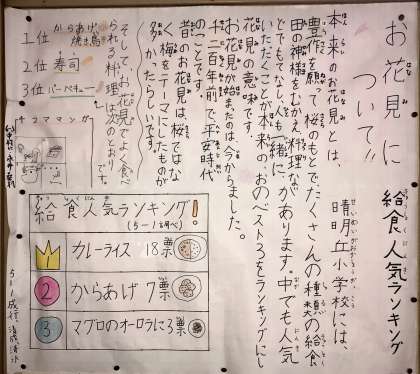 お花見に
ついて!!
本来のお花見とは、
豊作を願って桜のもとで
田の神様をむかえ料理な
どでもてなし人も一緒に
いただくことが本来の
花見の意味です。
お花見が始まったのは今から
千二百年前で、平安時代
のことです。
昔のお花見は、桜ではな
く梅をテーマにしたものが
多かったらしいです。
そして、お花見でよく食べ
られる料理は次のとおりです。
1位 からあげ 焼き鳥
2位 寿司
3位 バーベキュー
4コママンガ
給食人気ランキング
晴明丘小学校には、
たくさんの種類の給食
があります。中でも人気
のおのベスト3をランキングにし
ました。
給食人気ランキング!
(5-1調べ)
1 カレーライス 18票
2 からあげ 7票
3 マグロのオーロラに 3票